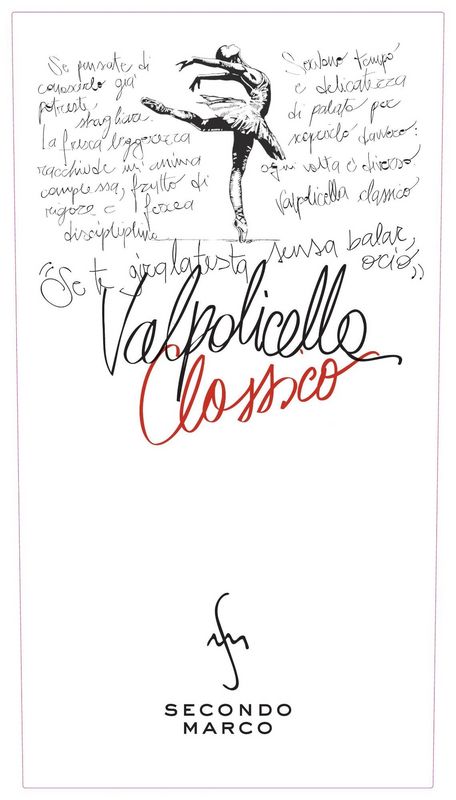 Se pensate di
conoscerlo già
potreste
sbagliare.
la fresca leggerezza
racchiude un'anima
complessa, frutto di
rigore e ferrea
disciplina
Servono tempo
e delicatezza
di palato per
scoprirlo davvero:
ogni volta è diverso
Valpolicella classico
"Se te giralatesta sensa balar,
ocio"
Valpolicella
Classico
SECONDO
MARCO